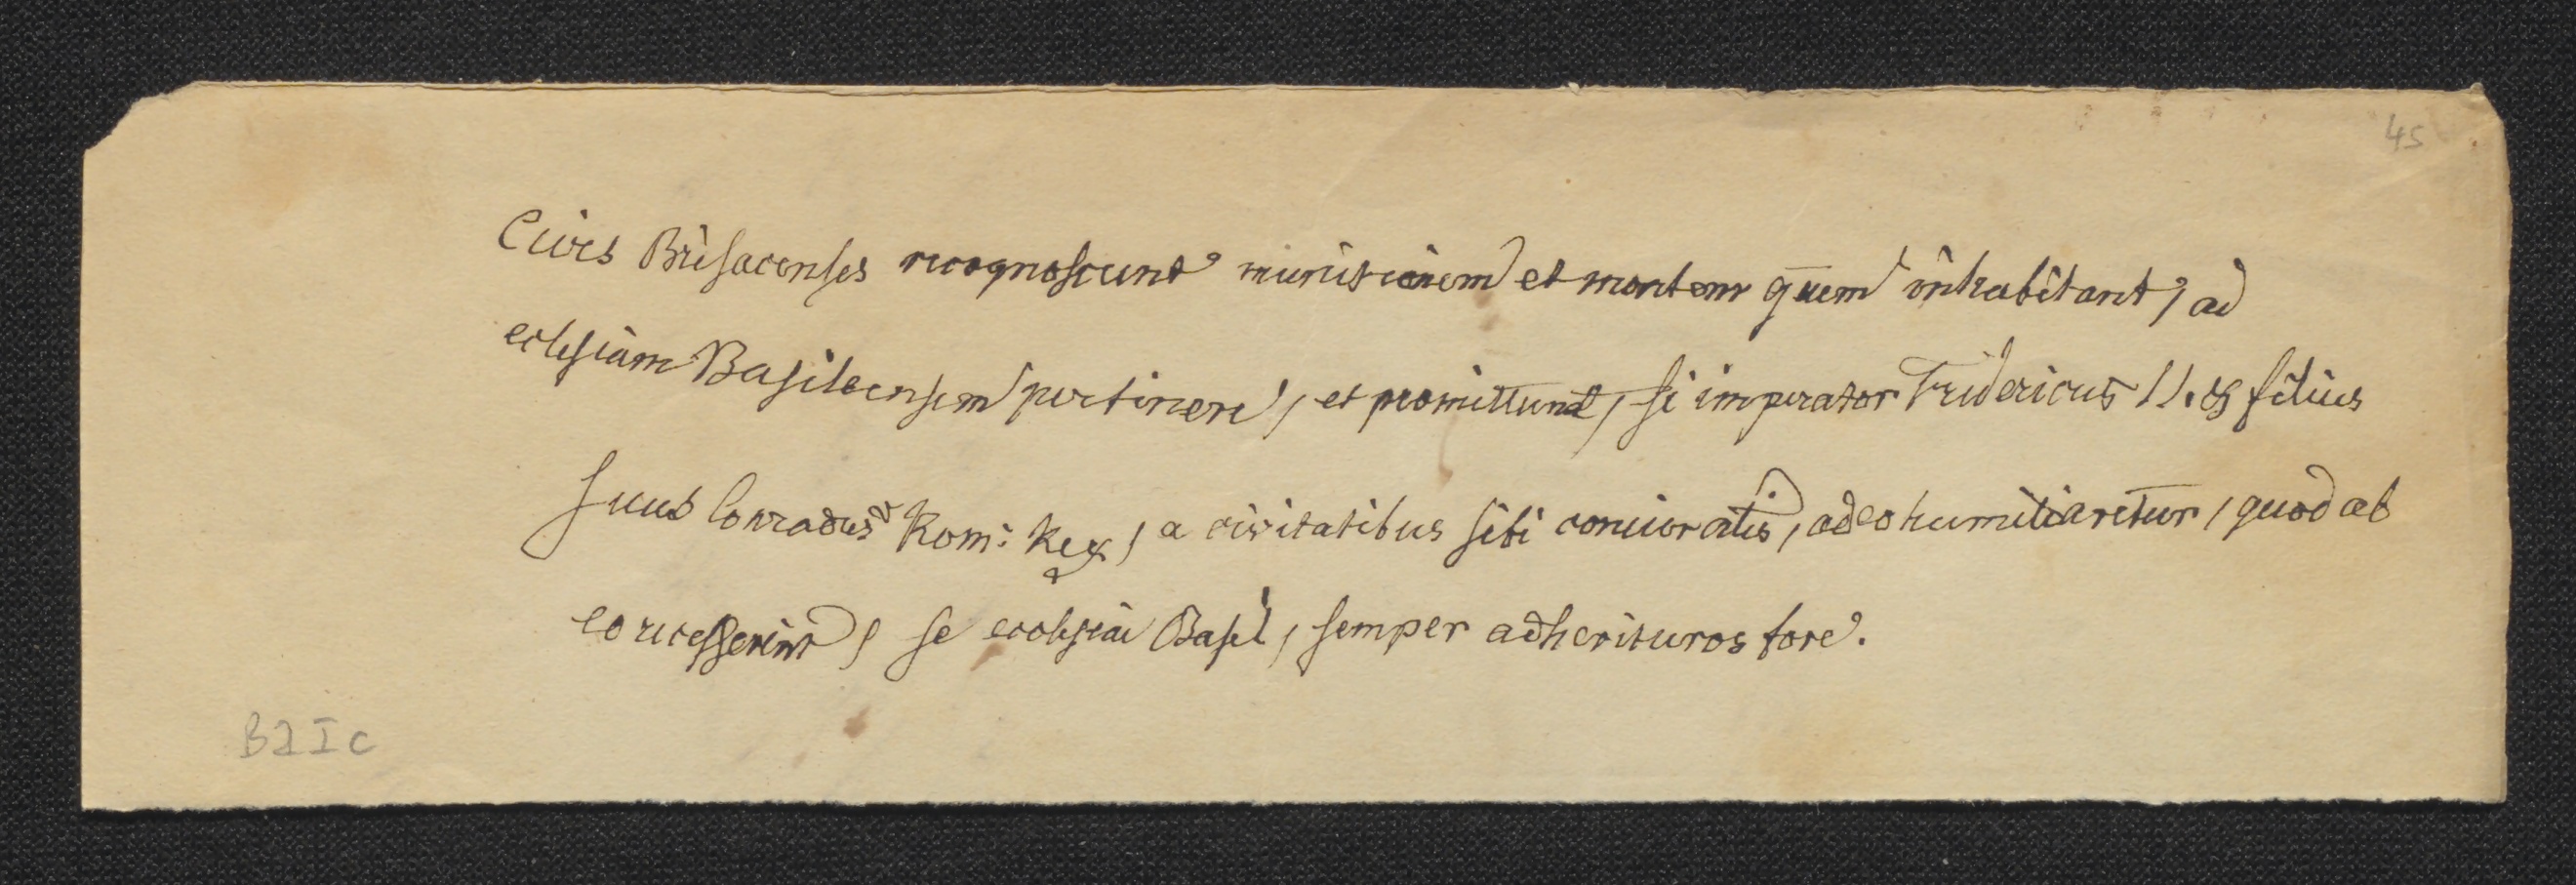 45
Cives Brisacenses recognoscunt munitionem et montem quem inhabitant, ad
eclesiam Basileensem pertinere, et promittunt, si imperator Fridericus II. & filius
suus Conradus Rom: Rex, a civitatibus sibi coniuratis, adeo humiliaretur, quod ab
eo recesserint, se ecclesiae Basil, semper adherituros fore.
B2Ic